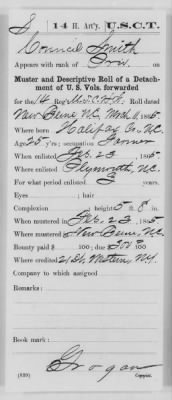 S | 14 H. Art'y. | U.S.C.T.
Council Smith
Appears with rank of Priv. on
Muster and Descriptive Roll of a Detach-
ment of U. S. Vols. forwarded
for the 14 Reg't U.S.C.H.A. Roll dated
New Berne N.C. March 11, 1865
Where born Halifax Co. N.C.
Age 25 y'rs; occupation Farmer
When enlisted Feb. 23, 1865
Where enlisted Plymouth, N.C.
For what period enlisted 3 years.
Eyes ; hair
Complexion ; height 5 ft. 8 in.
When mustered in Feb. 23, 1865
Where mustered in New Berne, N.C.
Bounty paid $ 100; due $ 300 100
Where credited 21 Dt. Western, N.Y.
Company to which assigned
Remarks:
Book mark:
Grogan
(339) Copyist.